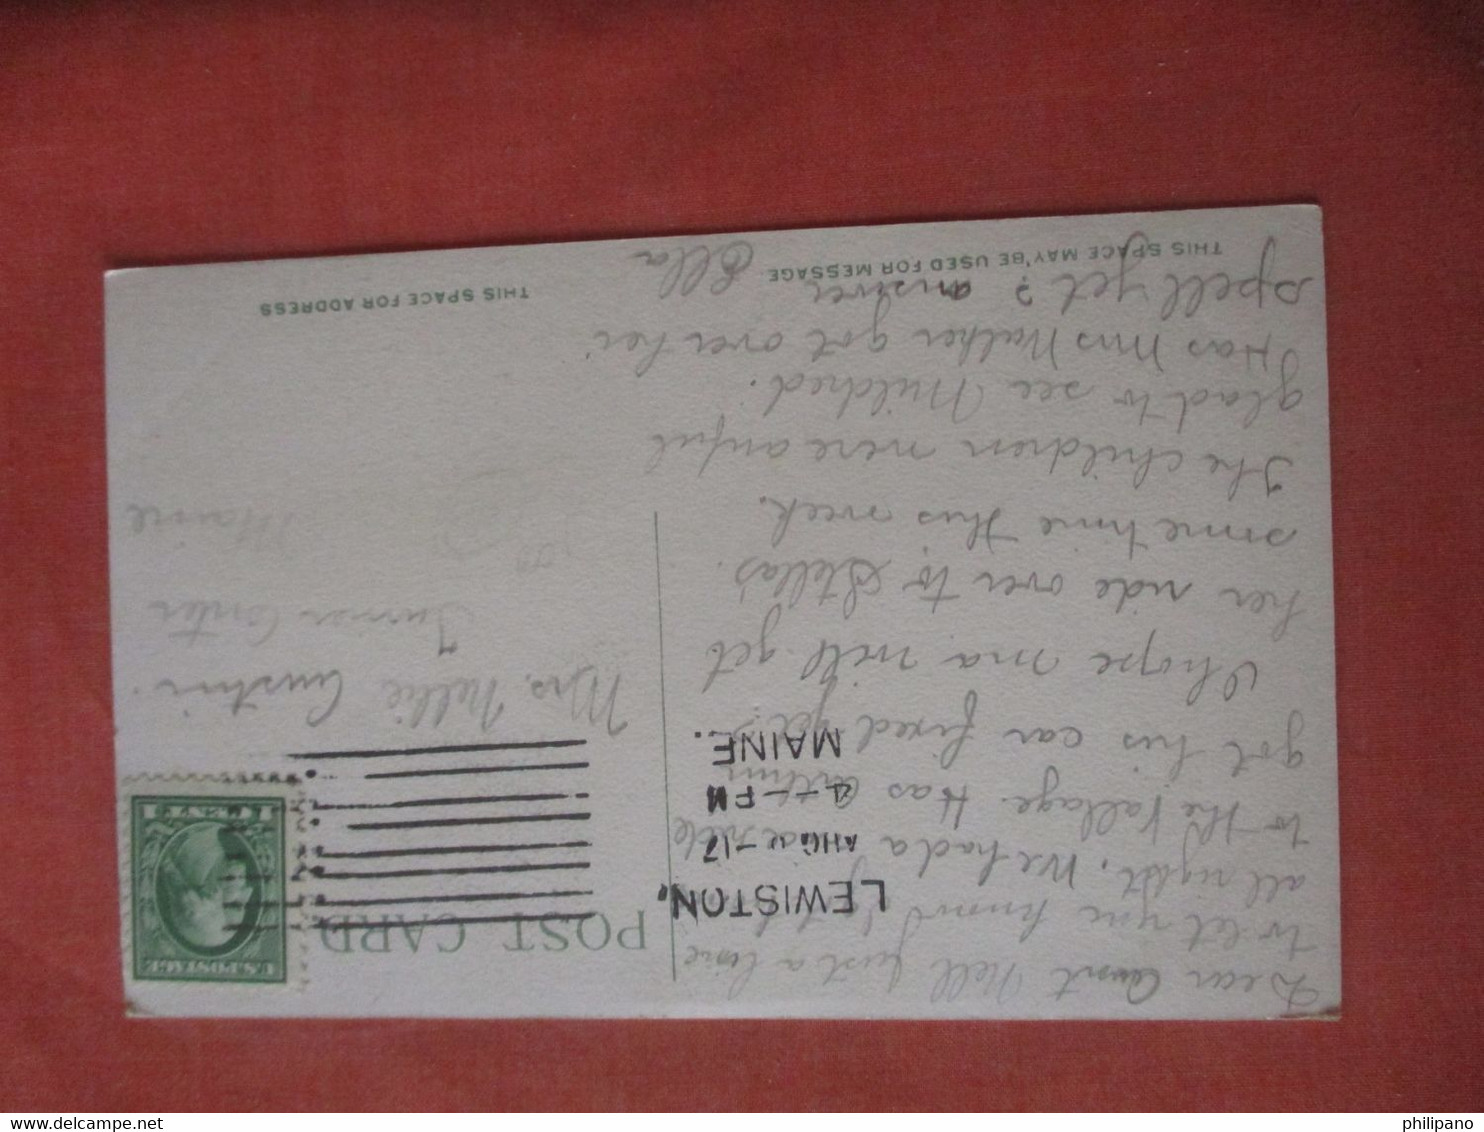 Dear Aunt Nell just a line
to let you know I got
all right. We had a
to the Vallage. Has
got his car fixed yet.
I hope ma will get
her ride over to Stella's
some time this week.
The children were awful
glad to see Mildred.
Has Mrs Walker got over her
spell yet? answer
Ella
THIS SPACE MAY BE USED FOR MESSAGE
POST CARD
LEWISTON,
4-PM
MAINE.
U.S. POSTAGE
1 CENT 1
Mrs. Nellie Austin.
Turner Center
Maine
THIS SPACE FOR ADDRESS
philipano